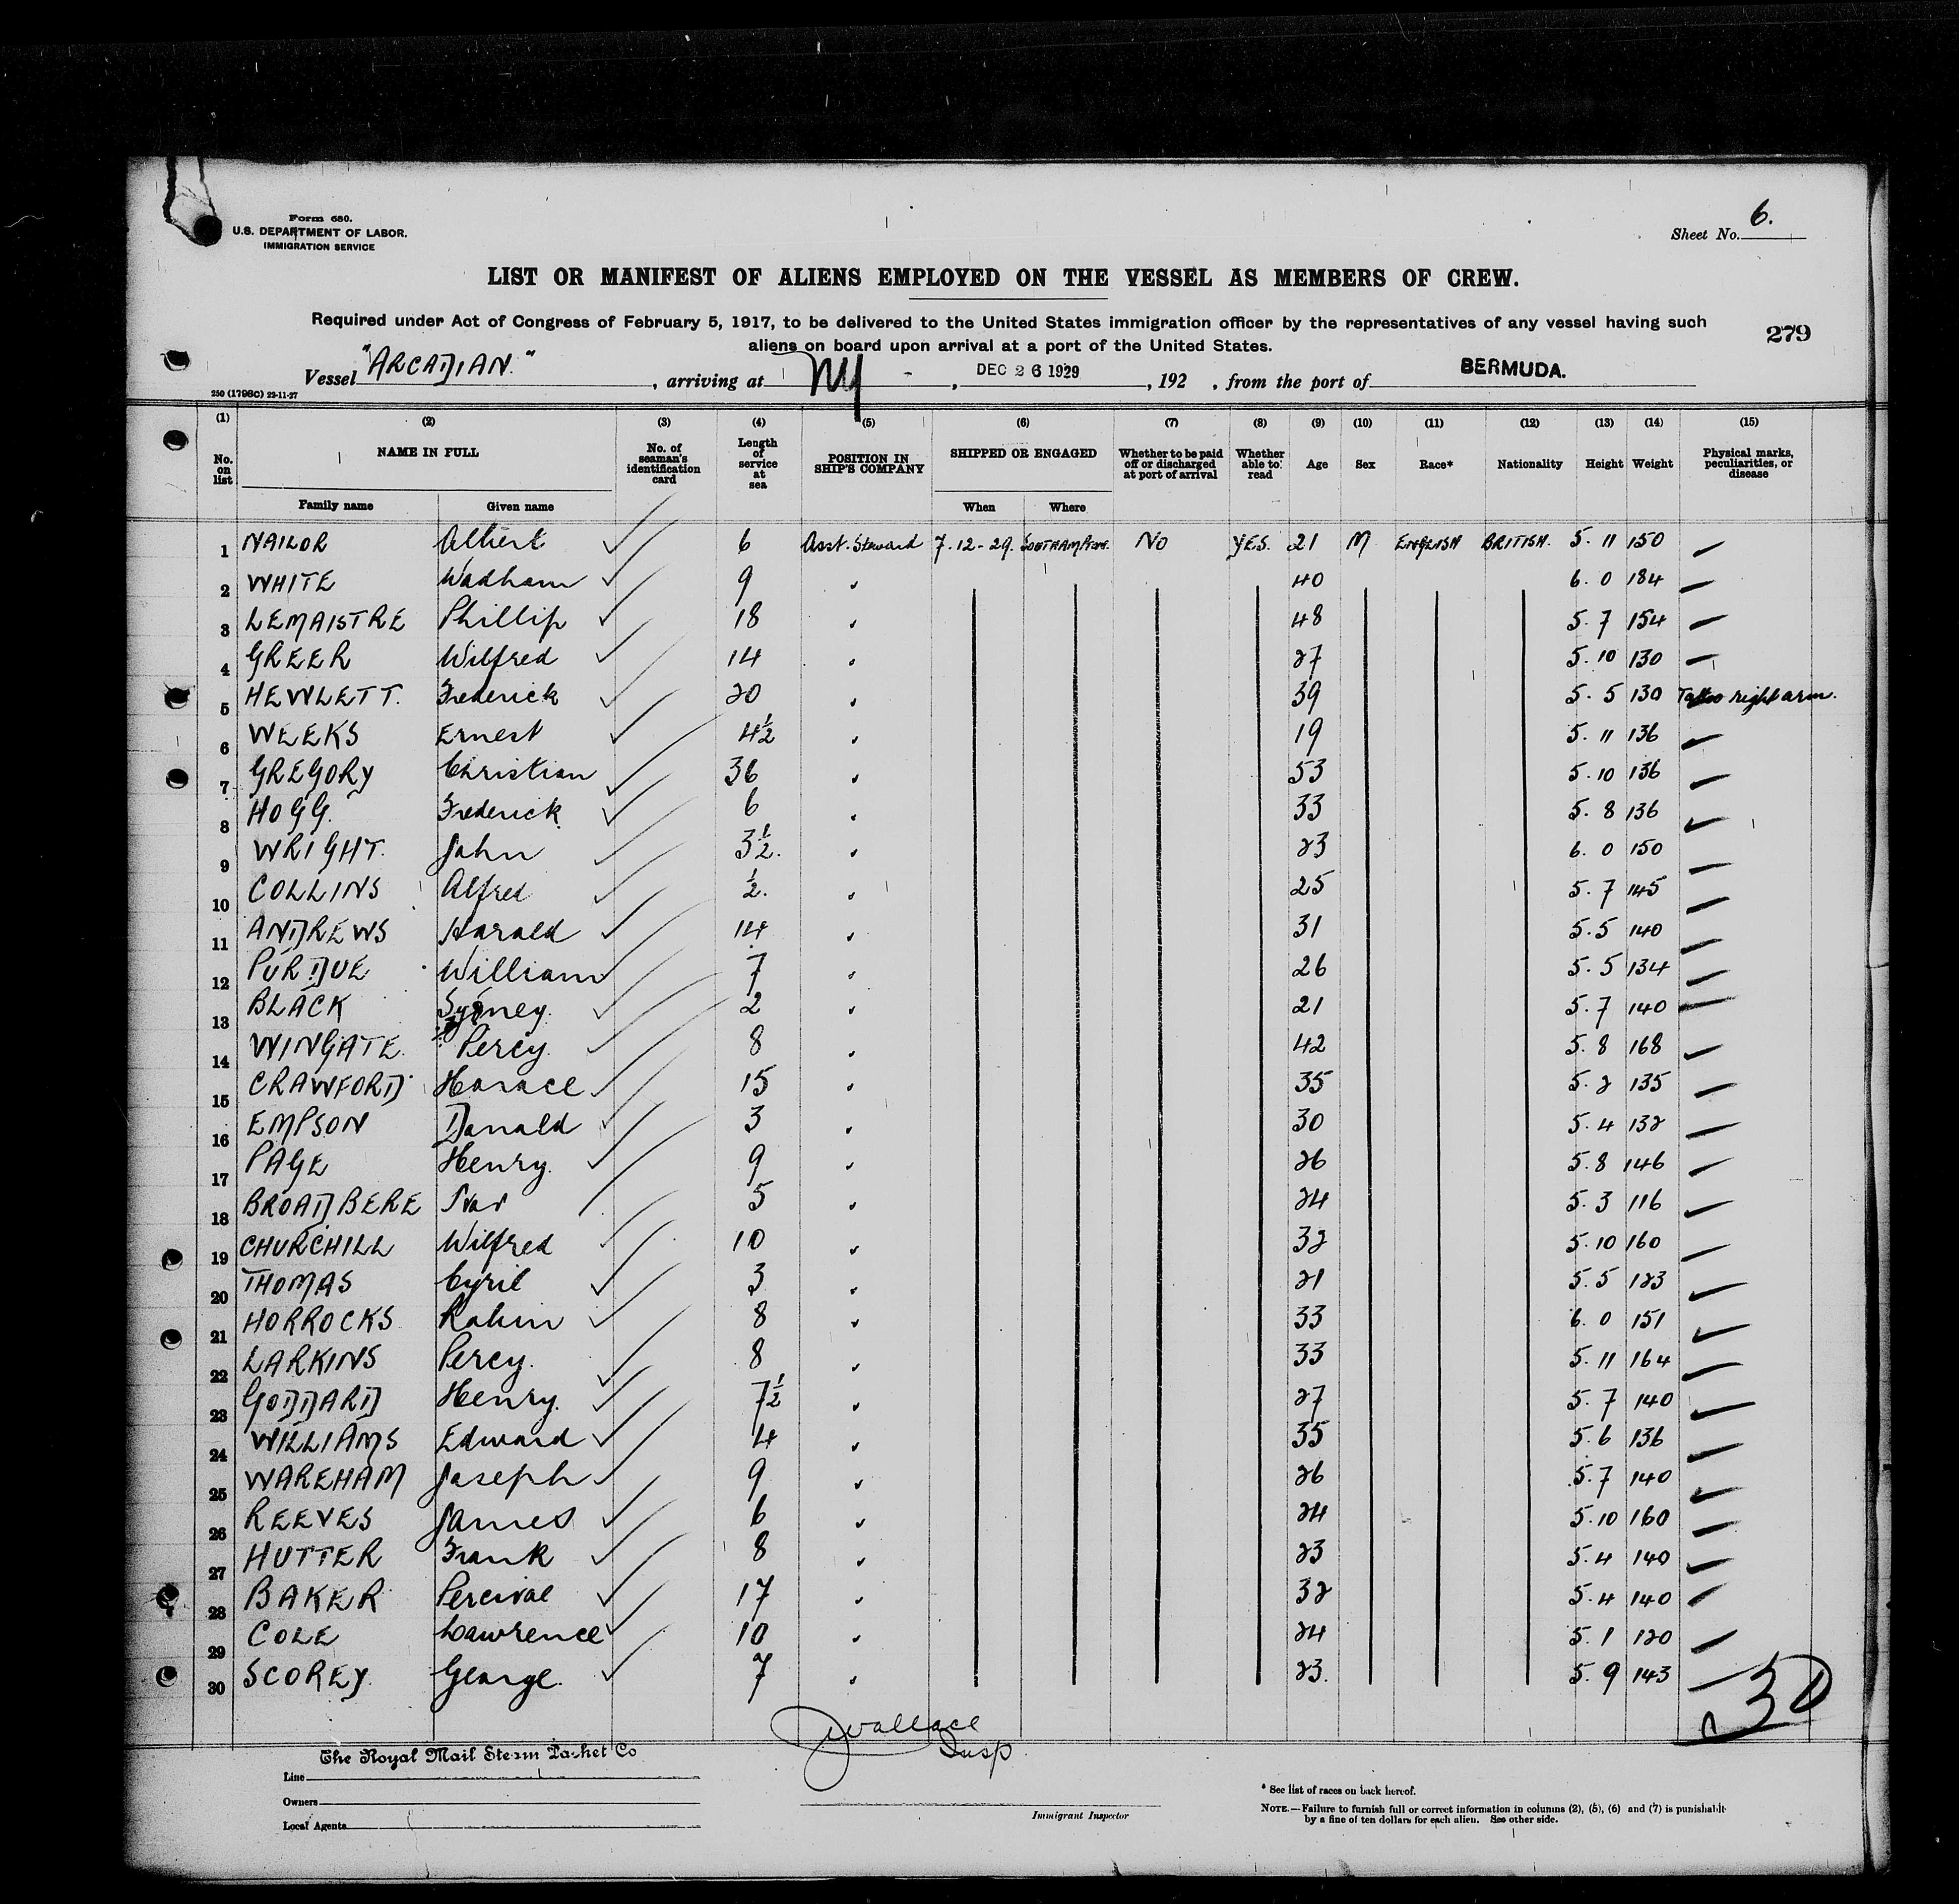 Form 680.
U.S. DEPARTMENT OF LABOR.
IMMIGRATION SERVICE
Sheet No. 6.
LIST OR MANIFEST OF ALIENS EMPLOYED ON THE VESSEL AS MEMBERS OF CREW.
Required under Act of Congress of February 5, 1917, to be delivered to the United States immigration officer by the representatives of any vessel having such
aliens on board upon arrival at a port of the United States.
279
Vessel "ARCADIAN." , arriving at NY - , DEC 26 1929 , 192 , from the port of BERMUDA.
250 (1796C) 22-11-27
(1) (2) (3) (4) (5) (6) (7) (8) (9) (10) (11) (12) (13) (14) (15)
No. on list NAME IN FULL No. of seaman's identification card Length of service at sea POSITION IN SHIP'S COMPANY SHIPPED OR ENGAGED Whether to be paid off or discharged at port of arrival Whether able to read Age Sex Race* Nationality Height Weight Physical marks, peculiarities, or disease
Family name Given name When Where
1 NAILOR Albert ✓ 6 Asst. Steward 7.12-29. SOUTHAMPTON. No YES. 21 M ENGLISH BRITISH. 5. 11 150 –
2 WHITE Wadham ✓ 9 " 40 6. 0 184 –
3 LEMAISTRE Phillip ✓ 18 " 48 5. 7 154 –
4 GREER Wilfred ✓ 14 " 27 5. 10 130 –
5 HEWLETT. Frederick ✓ 20 " 39 5. 5 130 Tattoo right arm.
6 WEEKS Ernest ✓ 4½ " 19 5. 11 136 –
7 GREGORY Christian ✓ 36 " 53 5. 10 136 –
8 HOGG. Frederick ✓ 6 " 33 5. 8 136 –
9 WRIGHT. John ✓ 3½. " 23 6. 0 150 –
10 COLLINS Alfred ✓ ½. " 25 5. 7 145 –
11 ANDREWS Harald ✓ 14 " 31 5. 5 140 –
12 PURDUE William ✓ 7 " 26 5. 5 134 –
13 BLACK Sydney. ✓ 2 " 21 5. 7 140 –
14 WINGATE. Percy. ✓ 8 " 42 5. 8 168 –
15 CRAWFORD Horace ✓ 15 " 35 5. 2 135 –
16 EMPSON Donald ✓ 3 " 30 5. 4 132 –
17 PAGE Henry. ✓ 9 " 26 5. 8 146 –
18 BROADBERE Ivor 5 " 24 5. 3 116 –
19 CHURCHILL Wilfred ✓ 10 " 32 5. 10 160 –
20 THOMAS Cyril ✓ 3 " 21 5. 5 123 –
21 HORROCKS Robin ✓ 8 " 33 6. 0 151 –
22 LARKINS Percy. ✓ 8 " 33 5. 11 164 –
23 GODDARD Henry. ✓ 7½ " 27 5. 7 140 –
24 WILLIAMS Edward ✓ 4 " 35 5. 6 136 –
25 WAREHAM Joseph ✓ 9 " 26 5. 7 140 –
26 REEVES James ✓ 6 " 24 5. 10 160 –
27 HUTTER Frank ✓ 8 " 23 5. 4 140 –
28 BAKER Percival ✓ 17 " 32 5. 4 140 –
29 COLE Lawrence ✓ 10 " 24 5. 1 120 –
30 SCOREY. George. ✓ 7 " 23. 5. 9 143 –
30
Wallace
Insp
The Royal Mail Steam Packet Co
Line
Owners
Local Agents
Immigrant Inspector
* See list of races on back hereof.
NOTE.—Failure to furnish full or correct information in columns (2), (5), (6) and (7) is punishable
by a fine of ten dollars for each alien. See other side.